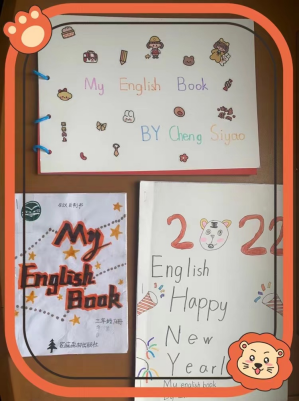 My English Book
BY Cheng Sijao
My
English
Book
2022
English
Happy
New
Year!
My english book